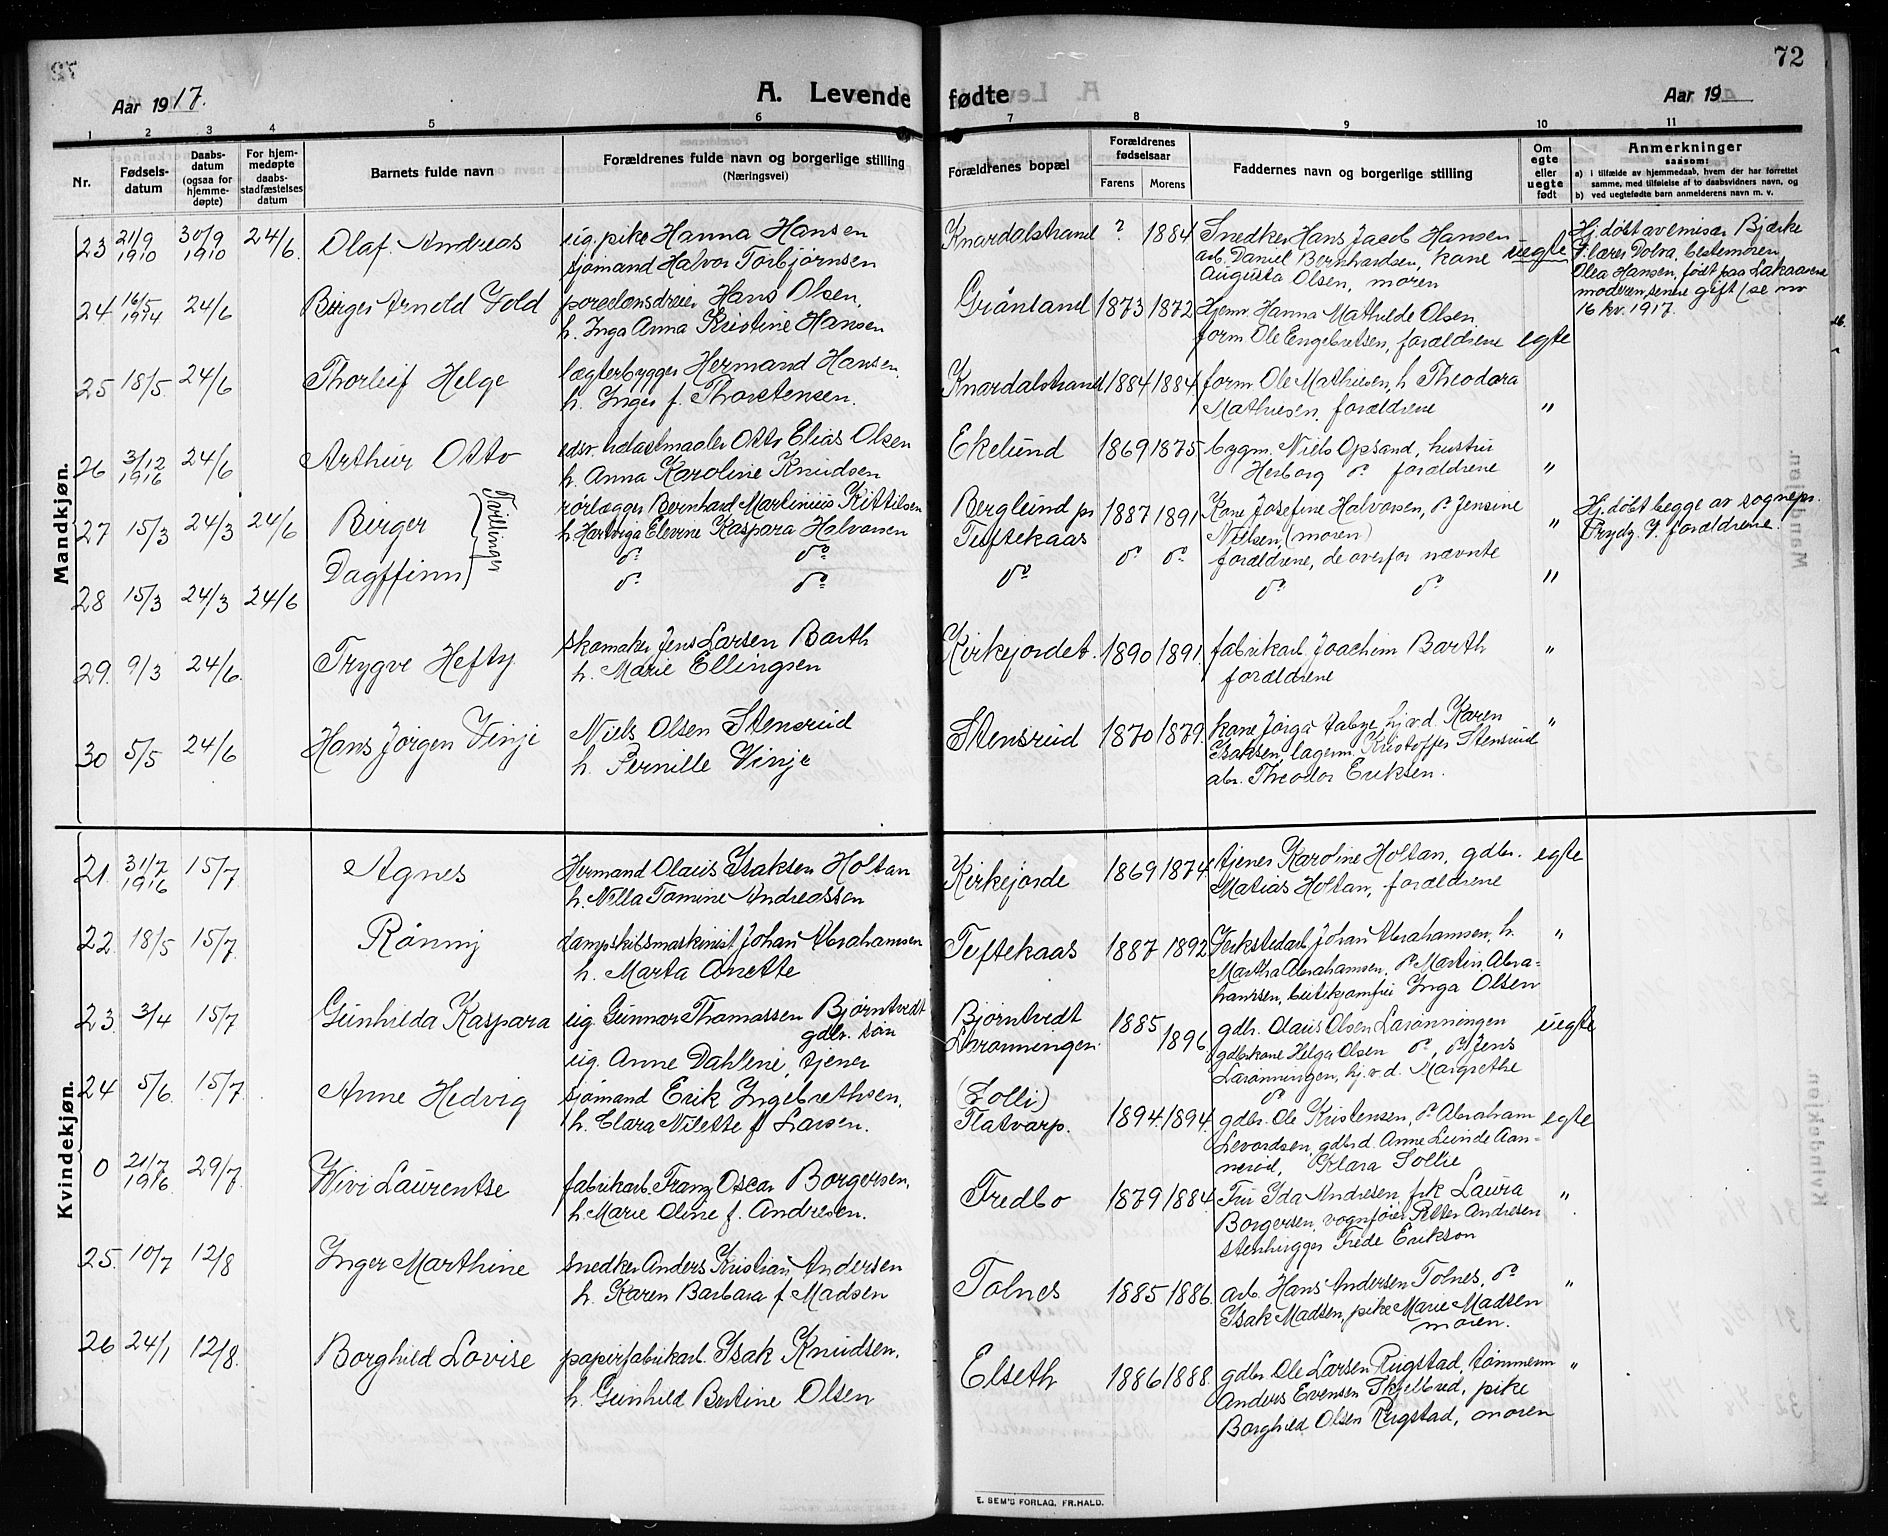 72
Aar 1917.
A. Levende fødte
Aar 19
1 2 3 4 5 6 7 8 9 10 11
Nr.
Fødsels-
datum
Daabs-
datum
(ogsaa for
hjemme-
døpte)
For hjem-
medøpte
daabs-
stadfæstelses
datum
Barnets fulde navn
Forældrenes fulde navn og borgerlige stilling
(Næringsvei)
Forældrenes bopæl
Forældrenes
fødselsaar
Farens Morens
Faddernes navn og borgerlige stilling
Om
egte
eller
uegte
født
Anmerkninger
saasom:
a) i tilfælde av hjemmedaab, hvem der har forrettet
samme, med tilføielse af to daabsvidners navn, og
b) ved uegtefødte barn anmelderens navn m. v.
Mandkjøn.
23 21/9 1910 30/9 1910 24/6 Olaf Andreas
ug. pike Hanna Hansen
sjømand Halvor Torbjørnsen
Knardalstrand ? 1884
Snedker Hans Jacob Hansen
arb. Daniel Bernhardsen, kone
Augusta Olsen, moren
uegte
Hj. døbt av emissær Bjerke
F. lærer Dolva, bestemoren
Olea Hansen, født paa Lakaarene
moderen senere gift (se nr
16 kv. 1917.
24 16/5 1914 24/6 Birger Arnold Fold
porselonsdreier Hans Olsen,
h. Inga Anna Kristine Hansen
Grånland 1873 1872
Hjemv. Hanna Mathilde Olsen
form Ole Engebretsen, forældrene egte
25 18/5. 24/6 Thorleif Helge
lægterbygger Hermand Hansen,
h. Inger f. Thorstensen.
Knardalstrand 1884 1884
form. Ole Mathiesen, h Theodora
Mathiesen, forældrene "
26 3/12 1916 24/6 Arthur Otto
Otto Elias Olsen
h. Anna Karoline Knudsen
Ekelund 1869 1875
bygm. Niels Opsand, hustru
Herborg do forældrene "
27 15/3 24/3 24/6 Birger
Tvillinger
rørlægger Bernhard Martinius Kittilsen
h Hartviga Elevine Kaspara Halvorsen
Berglund pr
Tuftekaas 1887 1891
Kone Josefine Halvorsen, do Jensine
Nielsen, (moren)
forældrene, de overfor nævnte "
Hj. døbt begge av sognepr.
Frydz. F. forældrene.
28 15/3 24/3 24/6 Dagffinn
do do
do do
do do do
do do "
29. 9/3 24/6. Trygve Hefty
Skomaker Jens Larsen Barth
h. Marie Ellingsen
Kirkejordet. 1890 1891
fabrikarb. Joachim Barth
forældrene "
30 5/5 24/6 Hans Jørgen Vinje
Niels Olsen Stensrud
h. Pernille Vinje
Stensrud 1870 1879
kone Jørga Aabye, hj.v.d. Karen
Isaksen, lagerm. Kristoffer Stensrud
arb. Theodor Eriksen. "
Kvindekjøn.
21. 31/7 1916 15/7 Agnes
Hermand Olaus Isaksen Holtan
h. Nilla Tomine Andreassen
Kirkejorde 1869 1874
tjener Karoline Holtan, gdbr.
Matias Holtan, forældrene egte
22. 18/5 15/7. Rønnij
dampskibsmaskinist Johan Abrahamsen
h. Marta Anette
Tuftekaas 1887 1892
Verkstedarb Johan Abrahamsen, h.
Martha Abrahamsen, do Martin Abra-
hamsen, butikjomfru Inga Olsen "
23. 3/4 15/7 Gunhilda Kaspara
ug. Gunnar Thomassen Bjørntvedt
gdbr. søn
ug. Anne Dahlene, tjener
Bjørntvedt
Larønningen. 1885 1896
gdbr. Olaus Olsen Larønningen
gdbrkone Helga Olsen do, do Jens
Larønningen, hj.v.d. Margrethe
do
uegte
24 5/6. 15/7. Anne Hedvig
sjømand Erik Ingebrethsen,
h. Clara Nilette f Larsen.
(Solli)
Flatvarp. 1894. 1894.
gdbr. Ole Kristensen, do Abraham
Levordsen, gdbrd. Anne Lunde Aan-
nerød, Klara Sollie
egte
0 21/7 1916 29/7. Wivi Laurentse
fabrikarb. Franz Oscar Borgersen,
h. Marie Oline f. Andresen.
Fredbo 1879 1884
Fru Ida Andresen, frk Laura
Borgersen, vognfører Petter Andresen
stenhugger Frede Erikson "
25. 10/7 12/8 Inger Marthine
snedker Anders Kristian Andersen
h. Karen Barbara f Madsen
Tolnes 1885 1886.
arb. Hans Andersen Tolnes, do
Isak Madsen, pike Marie Madsen
moren. "
26 24/1 12/8. Borghild Lovise
papirfabrikarb. Isak Knudsen,
h. Gunhild Bertine Olsen
Elseth 1886 1888
gdbr. Ole Larsen Rugstad, tømmerm
Anders Evensen Skjelbred, pike
Borghild Olsen Rugstad, moren "
E. SEM'S FORLAG, FR.HALD.